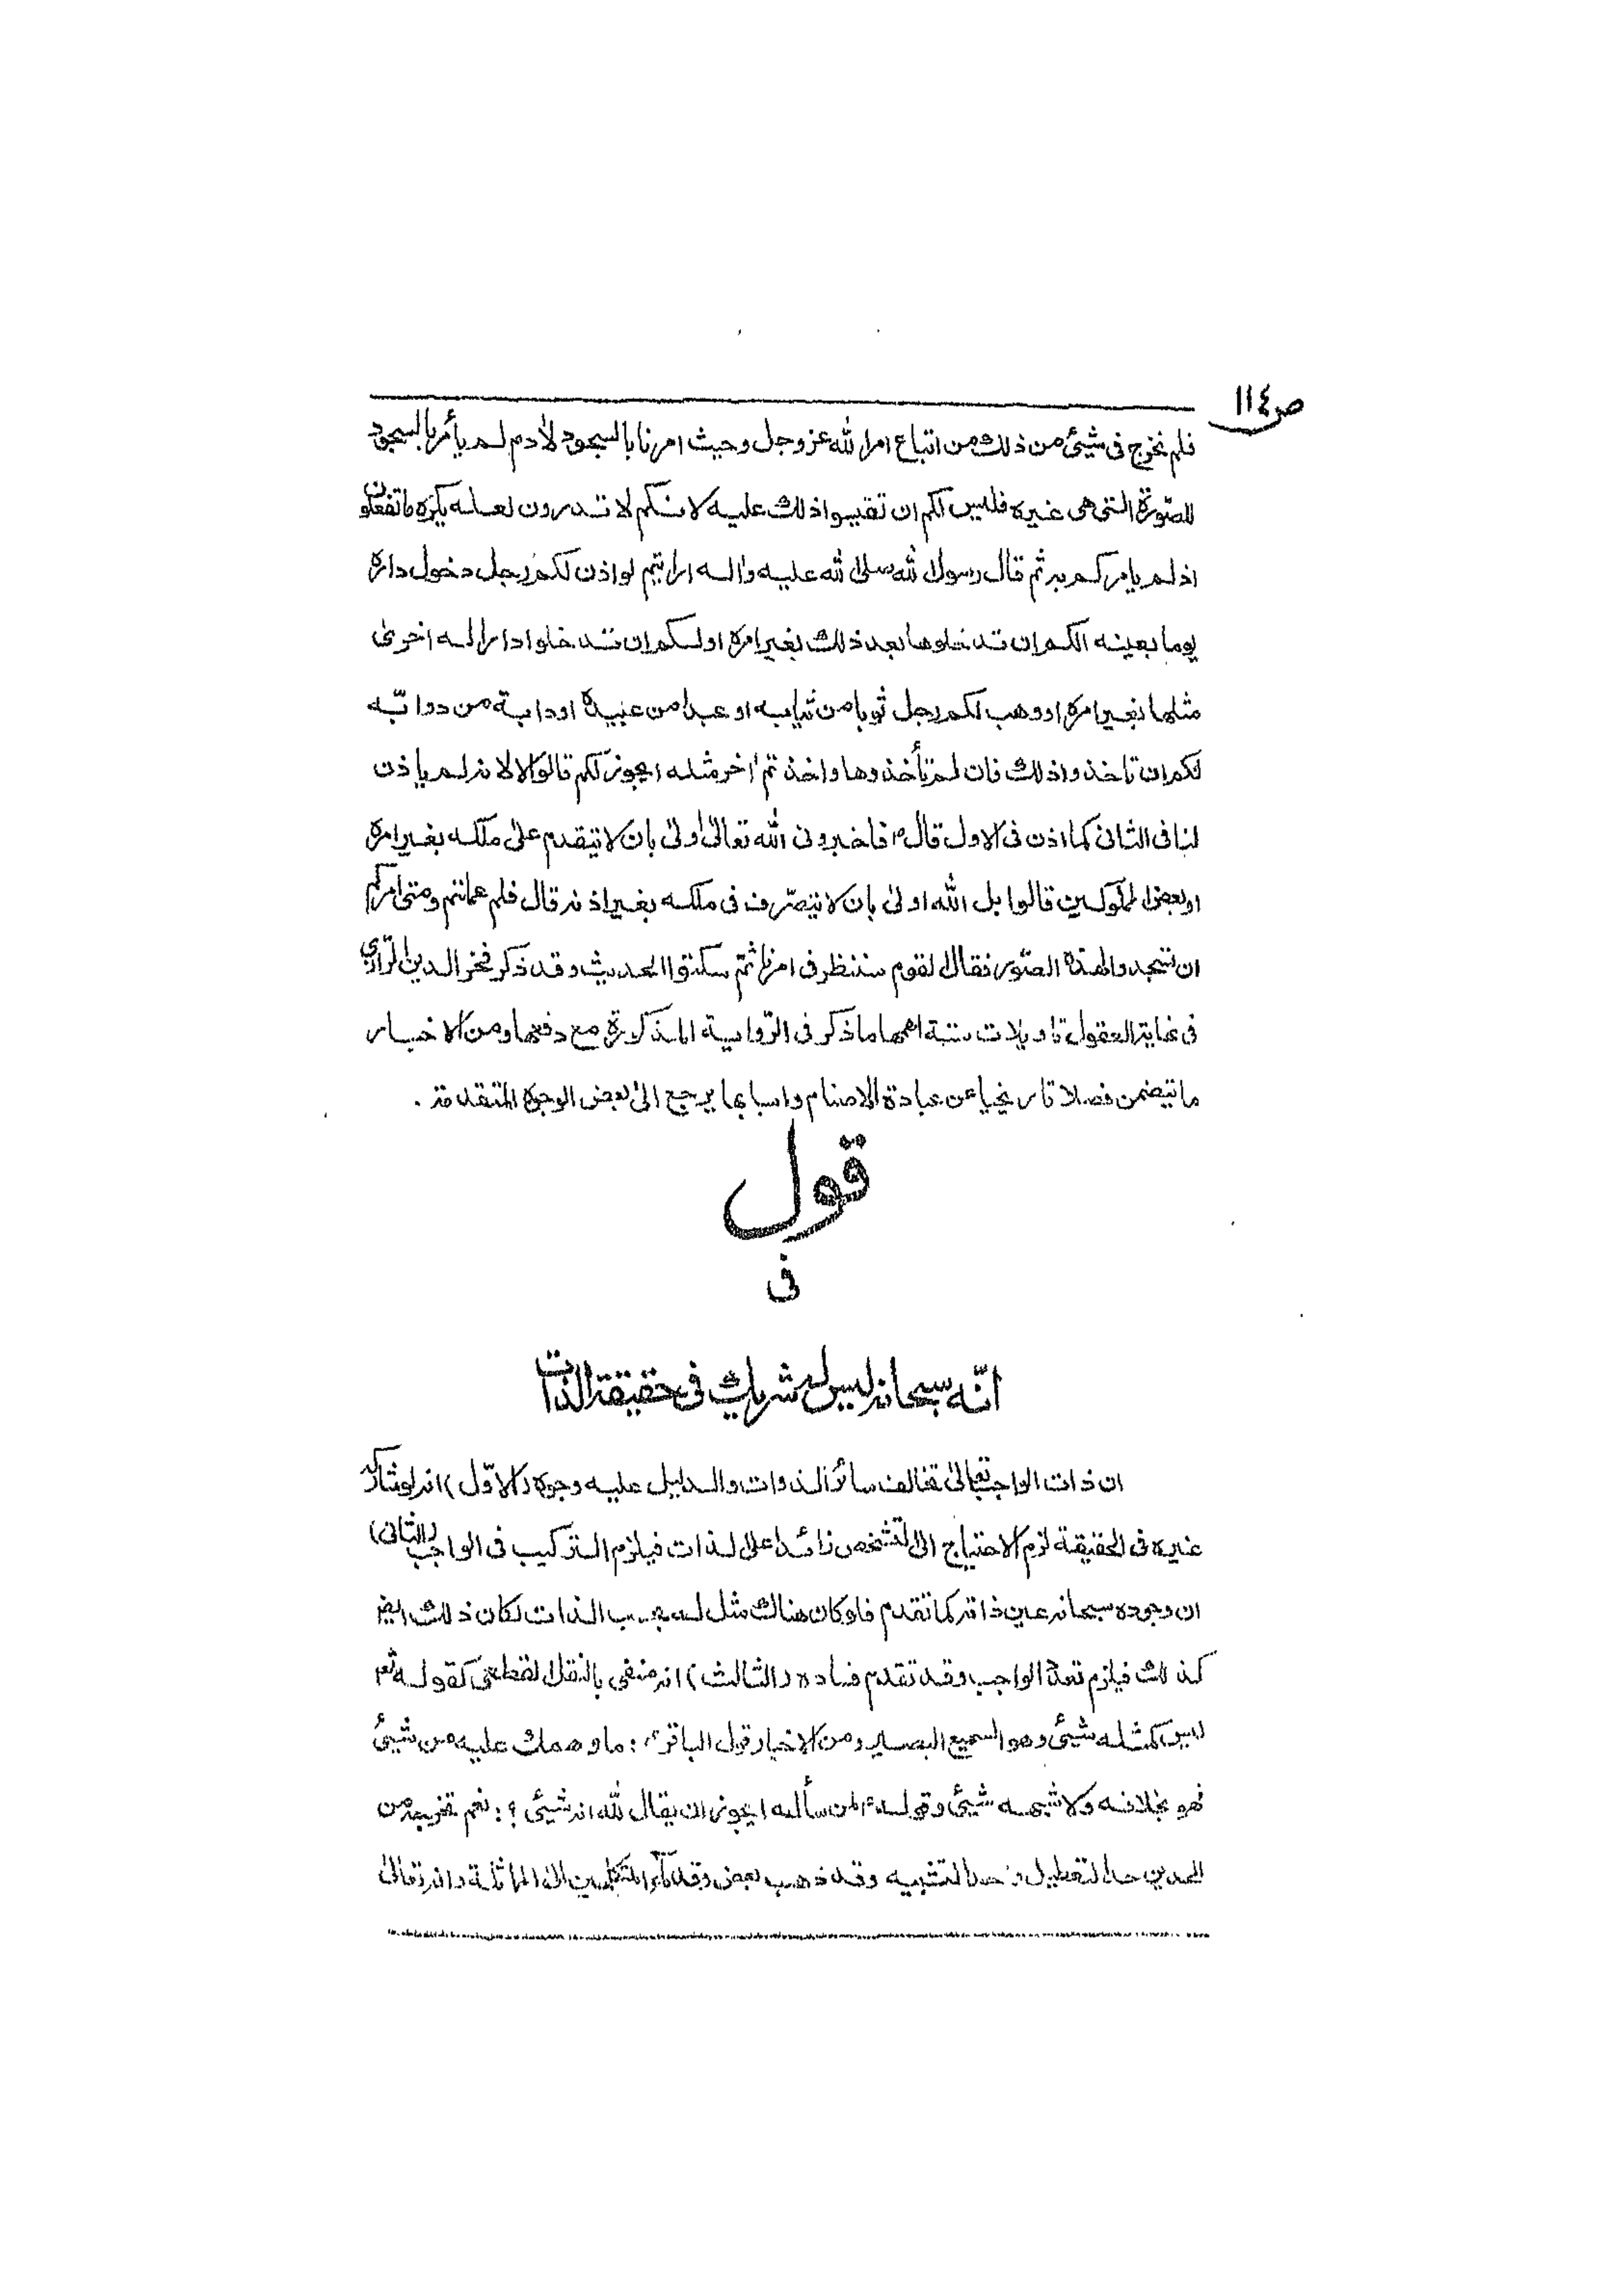 ص١١٤
فلم نخرج فى شيئ من ذلك من اتباع امر الله عز وجل وحيث امرنا بالسجود لادم لم يأمر بالسجود
للصّورة التى هى غيره فليس لكم ان تقيسوا ذلك عليه لانكم لا تدرون لعله يكره ما تفعلون
اذ لم يامركم به ثم قال رسول الله صلى الله عليه واله ارايتم لو اذن لكم رجل دخول داره
يوما بعينه الكم ان تدخلوها بعد ذلك بغير امره او لكم ان تدخلوا دارا له اخرى
مثلها بغير امره او وهب لكم رجل ثوبا من ثيابه او عبدا من عبيده او دابة من دوابّه
لكم ان تاخذوا ذلك فان لم تأخذوها واخذتم اخر مثله ايجوز لكم قالوا لا لانه لم ياذن
لنا فى الثانى كما اذن فى الاول قال فاخبرونى الله تعالى اولى بان لا يتقدم على ملكه بغير امره
او بعض المملوكين قالوا بل الله اولى بان لا يتصّرف فى ملكه بغير اذنه قال فلم عملتم ومتى امركم
ان تسجدوا لهذه الصّور فقال القوم سننظر فى امرنا ثمّ سكتوا الحديث وقد ذكر فخر الدين الرّازى
فى نهاية العقول تاويلات ستة اهمها ما ذكر فى الرّواية المذكورة مع دفعها ومن الاخبار
ما تيضمن فصلا تاريخيا عن عبادة الاصنام واسبابها يرجع الى بعض الوجوه المتقدمة .
قول
فى
انّه سبحانه ليس له شريك فى حقيقة الذات
ان ذات الواجب تعالى تخالف سائر الذوات والدليل عليه وجوه (الاوّل) انه لو شارك
غيره فى الحقيقة لزم الاحتياج الى التشخص زائدا على الذات فيلزم التركيب فى الواجب (الثانى)
ان وجوده سبحانه عين ذاته كما تقدم فلو كان هناك مثل له بحسب الذات لكان ذلك ايضا
كذلك فيلزم تعدّد الواجب وقد تقدم فساده (الثالث) انه منفى بالنقل القطعى كقوله تعم
ليس كمثله شيئ وهو السميع البصير ومن الاخبار قول الباقر : ما وهمك عليه من شيئ
فهو بخلافه ولا شبهه شيئ وقوله لمن سأله ايجوز ان يقال لله انه شيئى ؟ : نعم تخرجه من
الحدين حد التعطيل وحد التشبيه وقد ذهب بعض قدماء المتكلمين الى المماثلة وانه تعالى